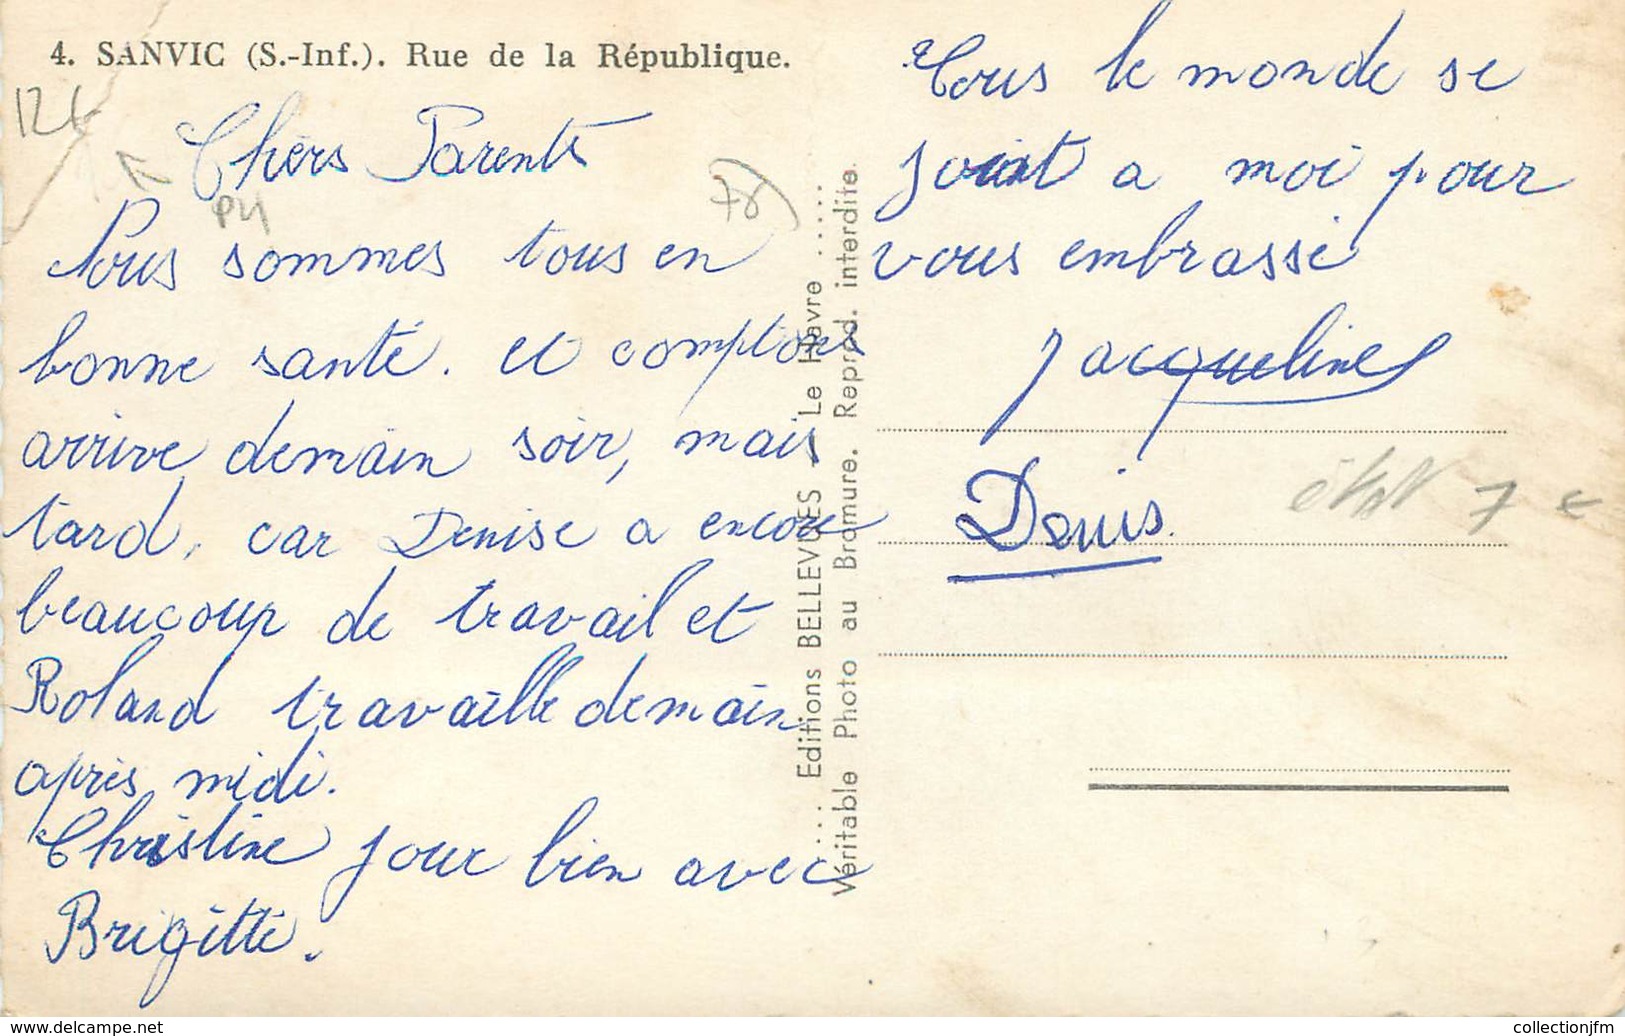 4. SANVIC (S.-Inf.). Rue de la République.
12L
P4
78
Chers Parents
Nous sommes tous en
bonne santé. et comptons
arrive demain soir, mais
tard, car Denise a encore
beaucoup de travail et
Roland travaille demain
après midi.
Christine joue bien avec
Brigitte.
..... Editions BELLEVUES _ Le Havre .....
Véritable Photo au Bromure. Reprod. interdite.
Tous le monde se
joint a moi pour
vous embrasse
Jacqueline
Denis.
7 €
www.delcampe.net
collectionjfm